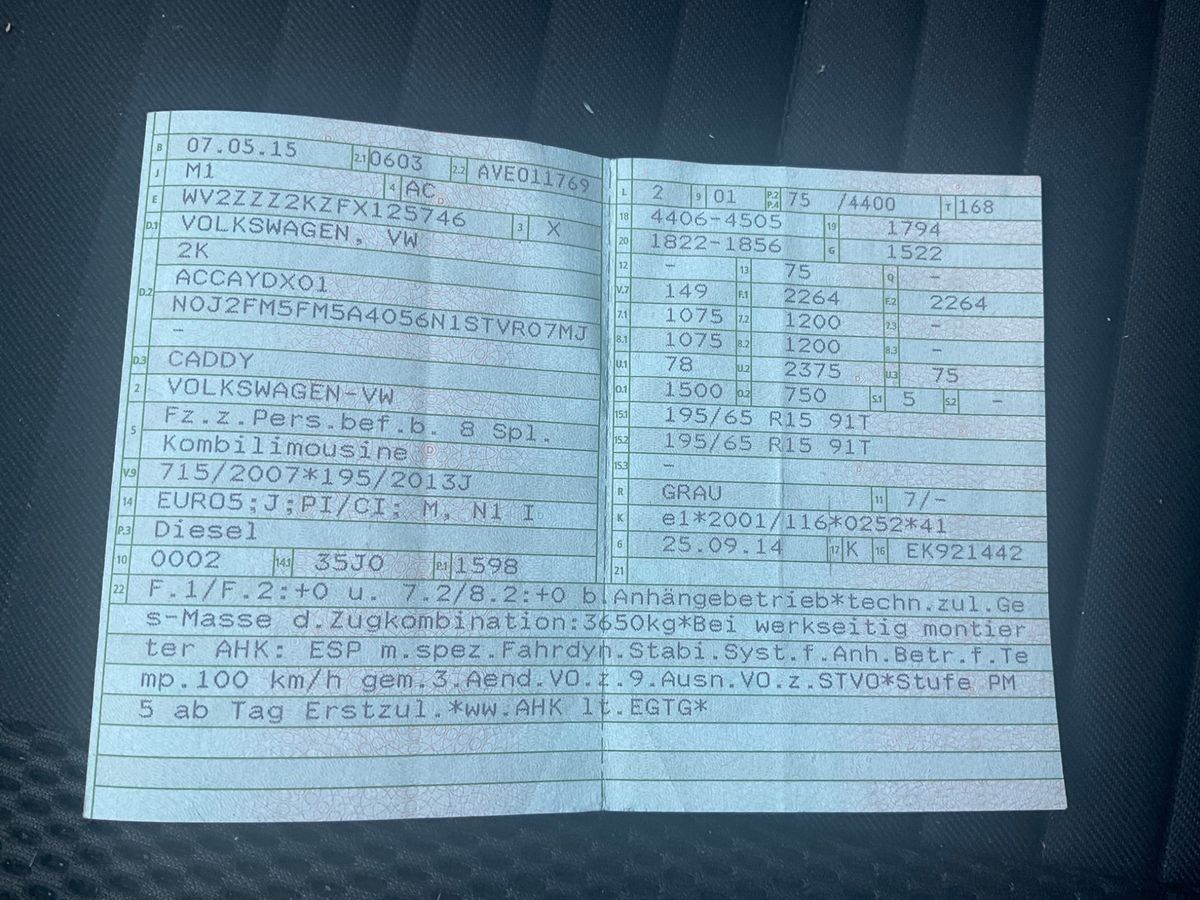 B 07.05.15 2.1 0603 2.2 AVE011769
J M1 4 AC
E WV2ZZZ2KZFX125746 3 X
D.1 VOLKSWAGEN, VW
2K
D.2 ACCAYDX01
N0J2FM5FM5A4056N1STVR07MJ
-
D.3 CADDY
2 VOLKSWAGEN-VW
5 Fz.z.Pers.bef.b. 8 Spl.
Kombilimousine
V.9 715/2007*195/2013J
14 EURO5;J;PI/CI; M, N1 I
P.3 Diesel
10 0002 14.1 35J0 P.1 1598
L 2 9 01 P.2 P.4 75 /4400 T 168
18 4406-4505 19 1794
20 1822-1856 G 1522
12 - 13 75 Q -
V.7 149 F.1 2264 F.2 2264
7.1 1075 7.2 1200 7.3 -
8.1 1075 8.2 1200 8.3 -
U.1 78 U.2 2375 U.3 75
O.1 1500 O.2 750 S.1 5 S.2 -
15.1 195/65 R15 91T
15.2 195/65 R15 91T
15.3 -
R GRAU 11 7/-
K e1*2001/116*0252*41
6 25.09.14 17 K 16 EK921442
21
22 F.1/F.2:+0 u. 7.2/8.2:+0 b.Anhängebetrieb*techn.zul.Ge
s-Masse d.Zugkombination:3650kg*Bei werkseitig montier
ter AHK: ESP m.spez.Fahrdyn.Stabi.Syst.f.Anh.Betr.f.Te
mp.100 km/h gem.3.Aend.VO.z.9.Ausn.VO.z.STVO*Stufe PM
5 ab Tag Erstzul.*ww.AHK lt.EGTG*